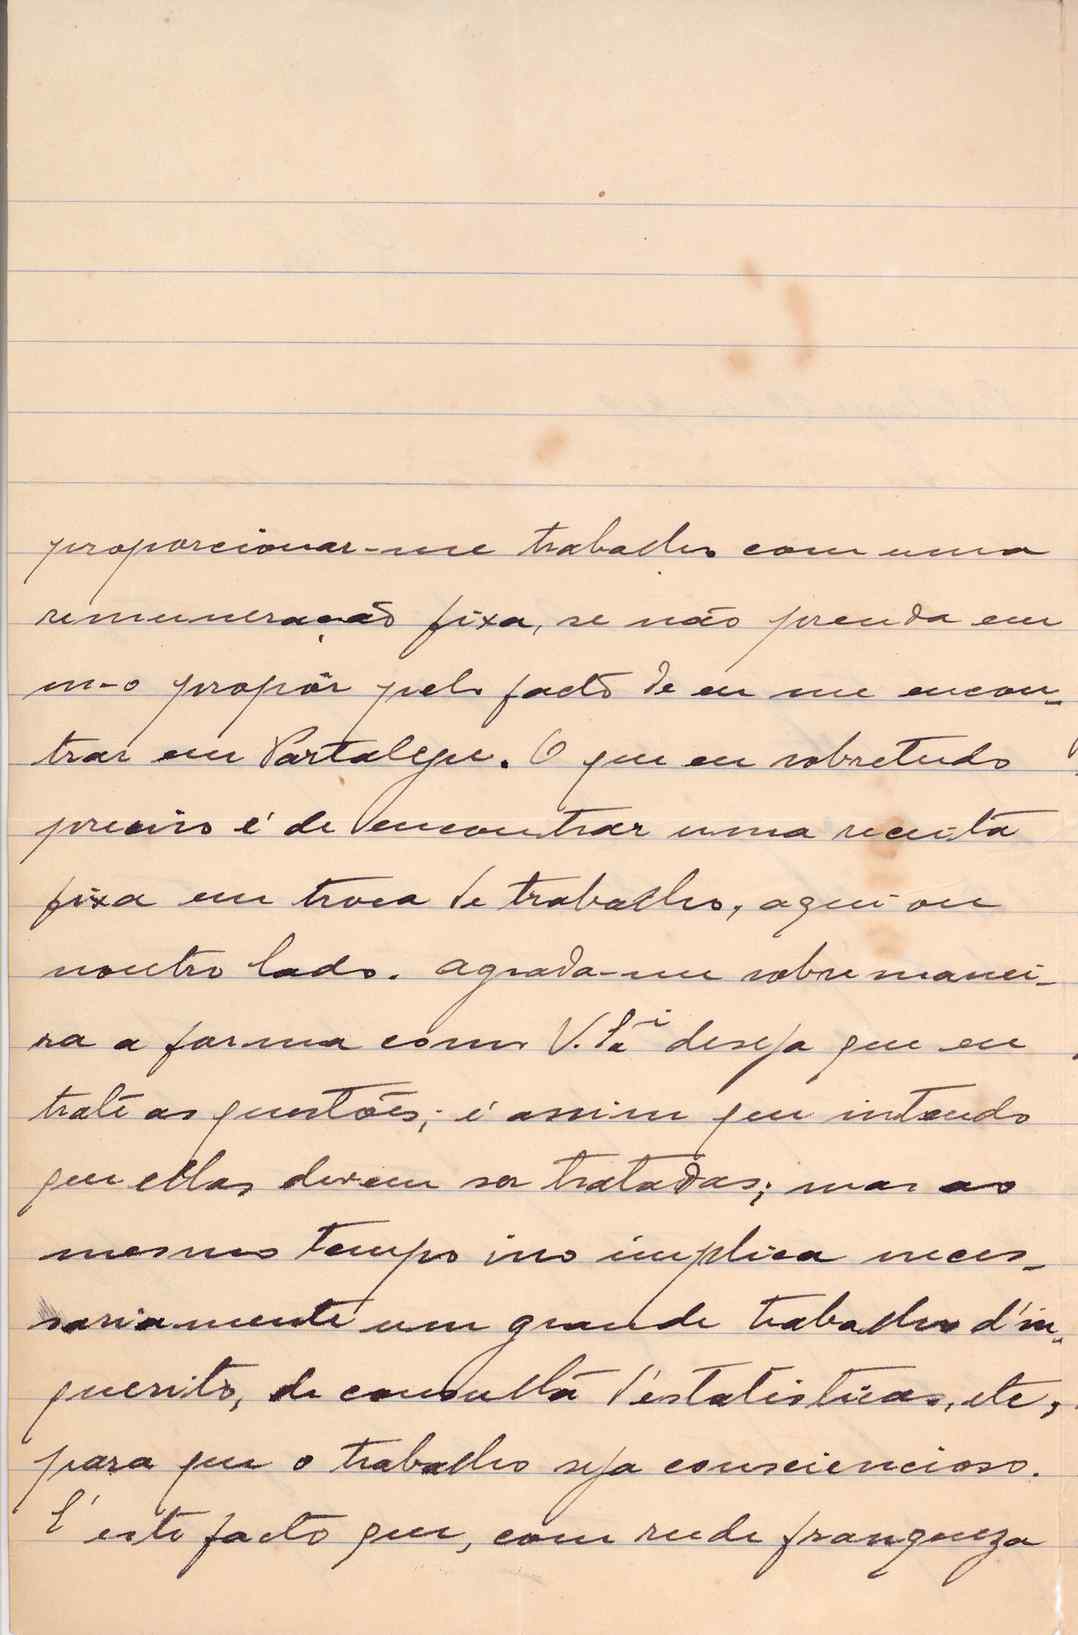 proporcionar-me trabalho com uma
remuneração fixa, se não prenda em
m-o propôr pelo facto de eu me encon-
trar em Portalegre. O que eu sobretudo
preciso é de encontrar uma receita
fixa em troca de trabalho, aqui ou
noutro lado. Agrada-me sobremanei-
ra a forma como V. S.ª deseja que eu
trate as questões; é assim que intendo
que ellas devem ser tratadas; mas ao
mesmo tempo isso implica neces-
sariamente um grande trabalho d'in-
querito, de consulta d'estatisticas, etc,
para que o trabalho seja consciencioso.
É este facto que, com rude franqueza